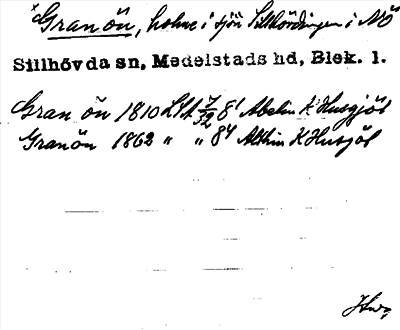 × Granön, holme i sjön Sillhövdingen i NÖ
Sillhövda sn, Medelstads hd, Blek. l.
Gran ön 1810 LSA 7/32 8¹ Abelin K Husgjöl
Granön 1862 " " 8⁴ Althin K Husjöl